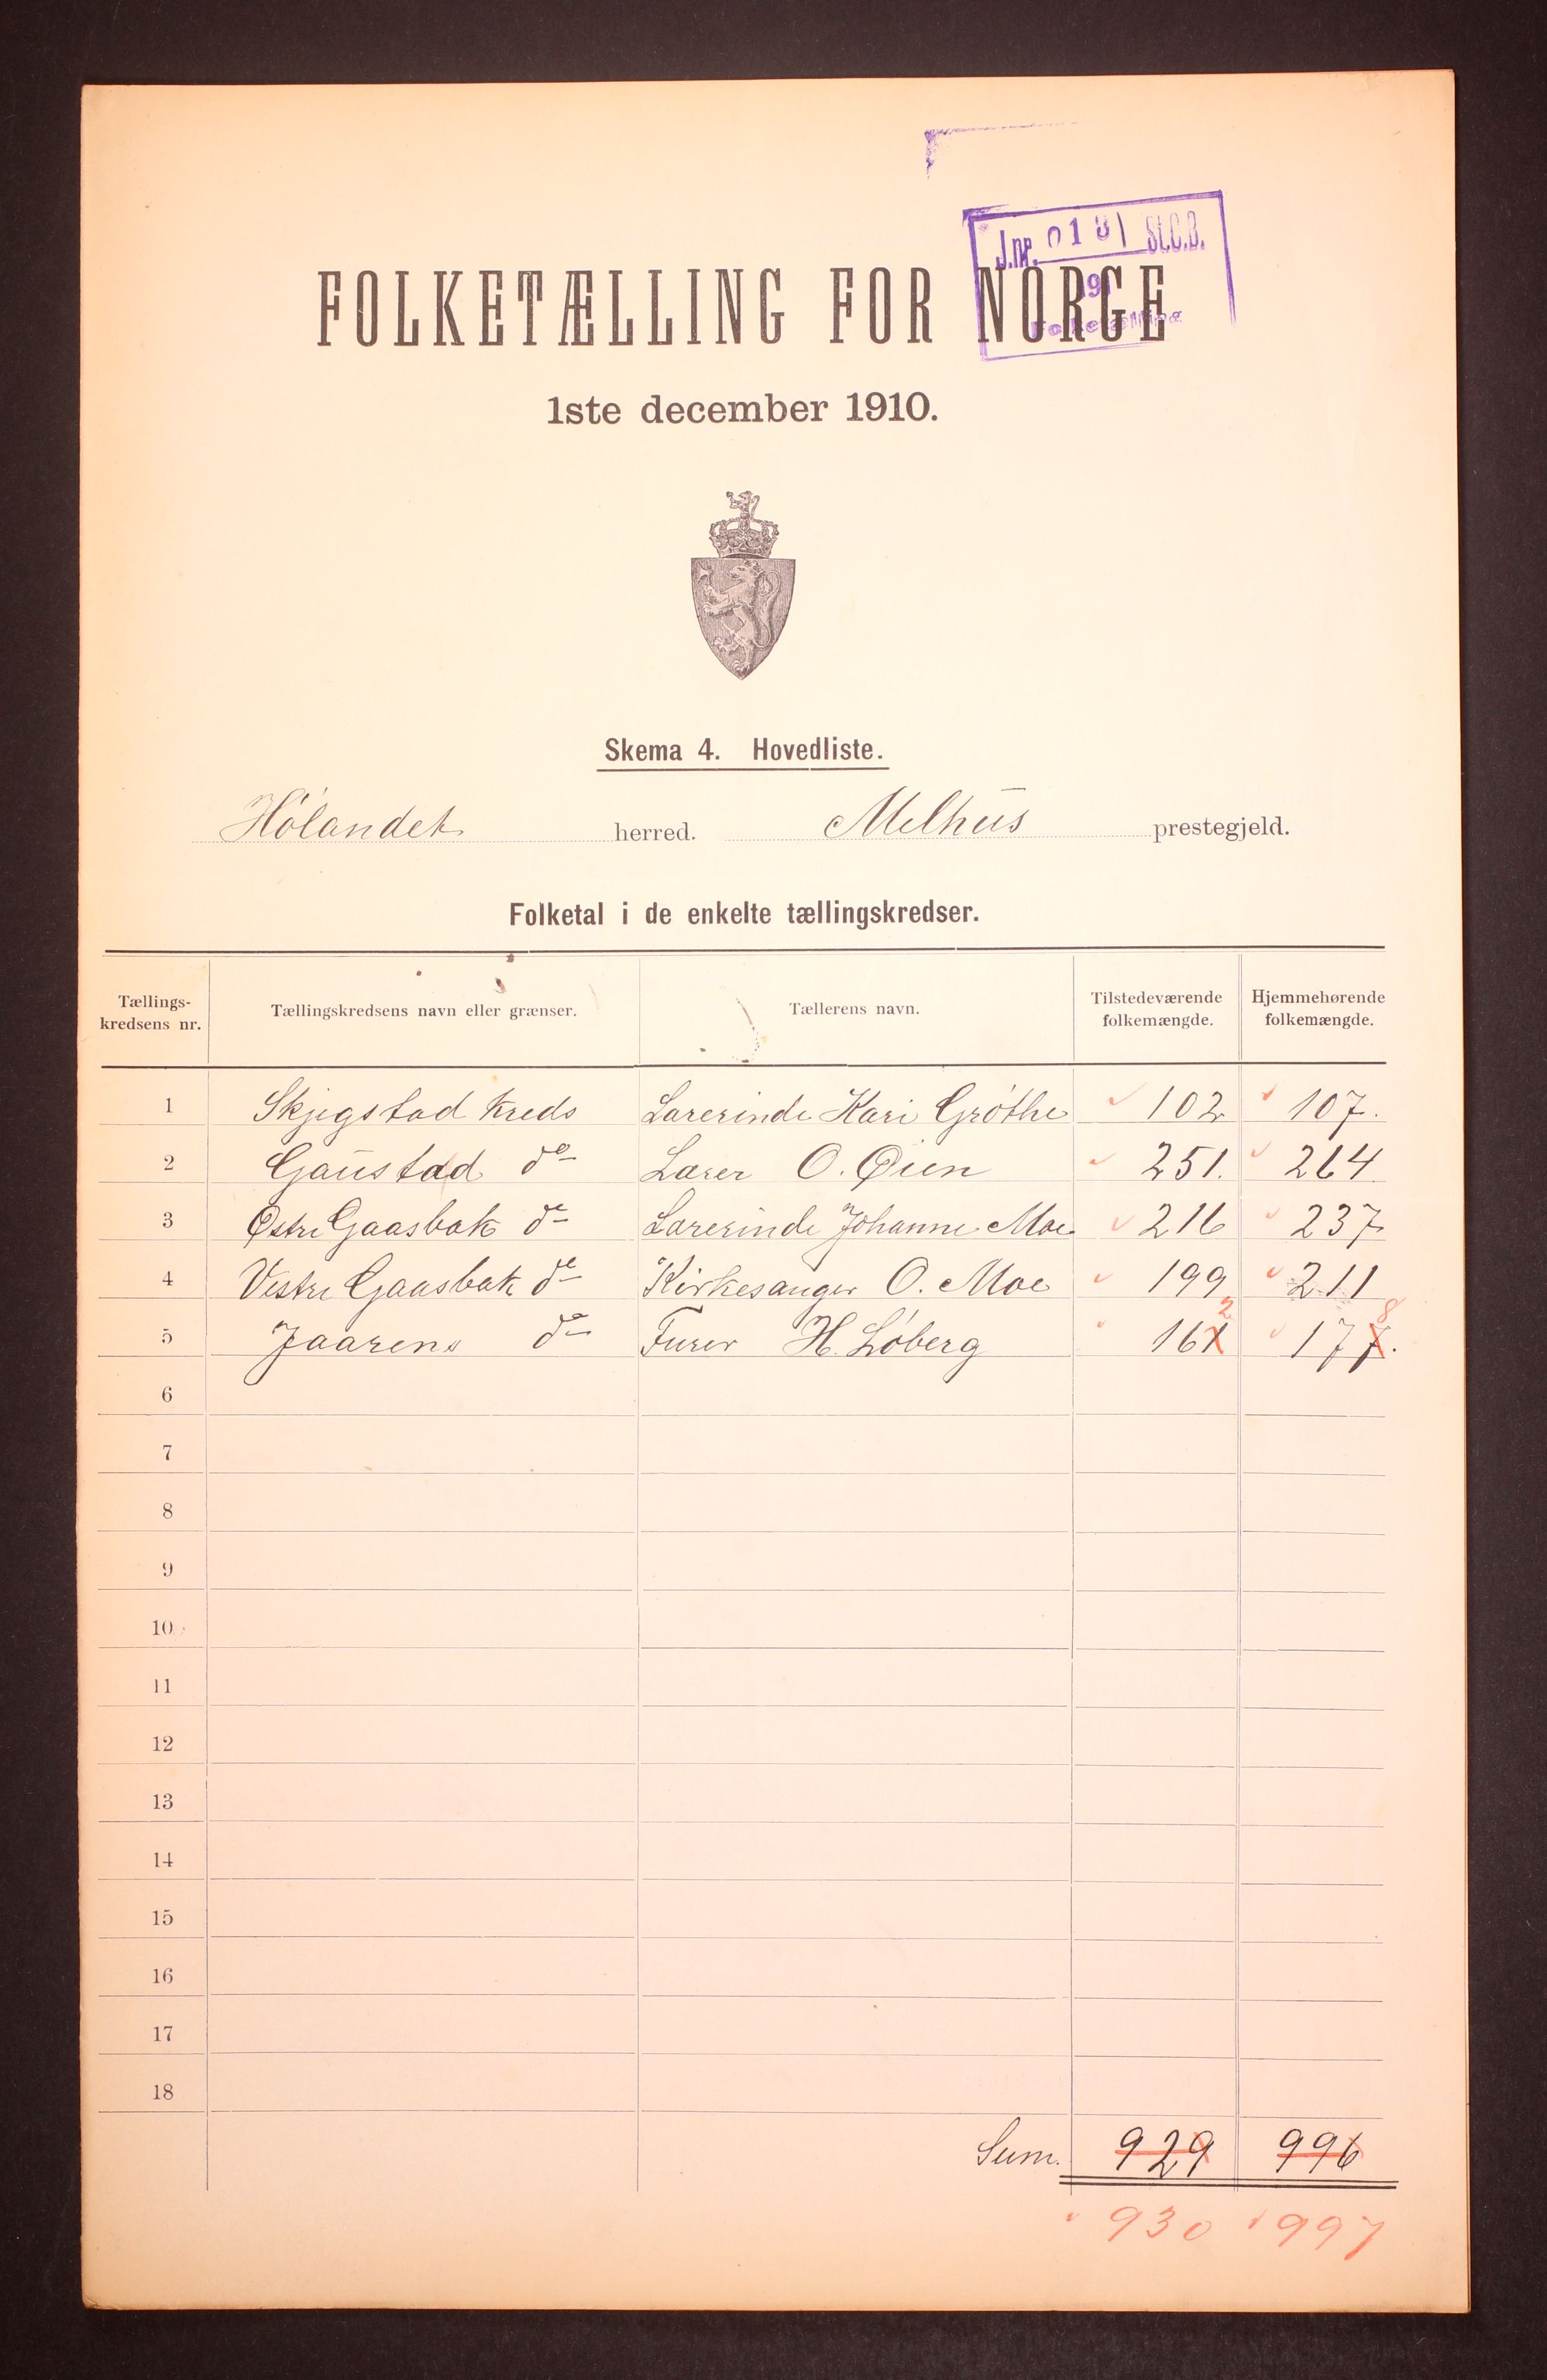 J.nr. 0181 St.C.B.
191
Folketælling
FOLKETÆLLING FOR NORGE
1ste december 1910.
Skema 4. Hovedliste.
Hölandet herred. Melhus prestegjeld.
Folketal i de enkelte tællingskredser.
Tællings-kredsens nr. Tællingskredsens navn eller grænser. Tællerens navn. Tilstedeværende folkemængde. Hjemmehørende folkemængde.
1 Skjegstad Kreds Lærerinde Kari Gröthe 102 107.
2 Gaustad do Lærer O. Øien 251. 264
3 Østre Gaasbak do Lærerinde Johanne Moe 216 237
4 Vestre Gaasbak do Kirkesanger O. Moe 199 211
2 8
5 Jaarens do Furer H. Löberg 161 177.
6
7
8
9
10
11
12
13
14
15
16
17
18
Sum. 929 996
930 997